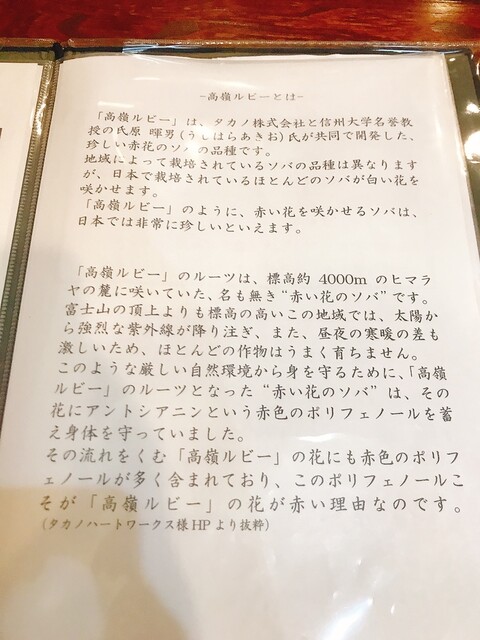 -高嶺ルビーとは-
「高嶺ルビー」は、タカノ株式会社と信州大学名誉教
授の氏原 暉男(うじはらあきお)氏が共同で開発した、
珍しい赤花のソバの品種です。
地域によって栽培されているソバの品種は異なります
が、日本で栽培されているほとんどのソバが白い花を
咲かせます。
「高嶺ルビー」のように、赤い花を咲かせるソバは、
日本では非常に珍しいといえます。
「高嶺ルビー」のルーツは、標高約 4000m のヒマラ
ヤの麓に咲いていた、名も無き“赤い花のソバ”です。
富士山の頂上よりも標高の高いこの地域では、太陽か
ら強烈な紫外線が降り注ぎ、また、昼夜の寒暖の差も
激しいため、ほとんどの作物はうまく育ちません。
このような厳しい自然環境から身を守るために、「高嶺
ルビー」のルーツとなった “赤い花のソバ” は、その
花にアントシアニンという赤色のポリフェノールを蓄
え身体を守っていました。
その流れをくむ「高嶺ルビー」の花にも赤色のポリフ
ェノールが多く含まれており、このポリフェノールこ
そが「高嶺ルビー」の花が赤い理由なのです。
(タカノハートワークス様HPより抜粋)